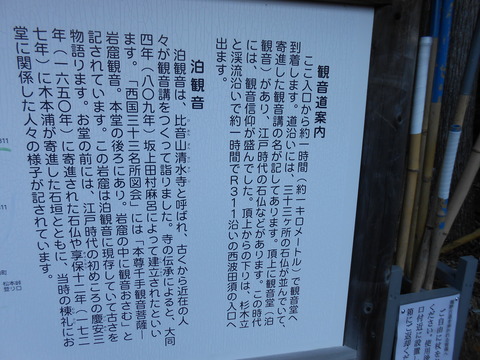 観音道案内
ここ入口から約一時間(約一キロメートル)で観音堂へ
到着します。道沿いには、三十三ヶ所の石仏が並んでいて、
寄進した観音講の名が記してあります。頂上に観音堂(泊
観音)があり、江戸時代の石仏などがあります。この時代
には、観音信仰が盛んでした。頂上からの下りは、杉木立
と渓流沿いで約一時間でR311沿いの西波田須の入口へ
出ます。
泊観音
泊観音は、比音山清水寺と呼ばれ、古くから近在の人
々が観音講をつくって詣りました。寺の伝承によると、大同
四年(八〇九年)坂上田村麻呂によって建立されたといい
ます。「西国三十三名所図会」には「本尊千手観音菩薩ー
岩窟観音。本堂の後ろにあり。岩窟の中に観音おさむ」と
記されています。この岩窟は泊観音に現存していて古さを
物語ります。お堂の前には、江戸時代の初めころの慶安三
年(一六五〇年)に寄進された石仏や享保十二年(一七二
七年)に木本浦が寄進した石垣とともに、当時の棟札にお
堂に関係した人々の様子が記されています。
311
松本峠
登り口
ご自由に杖を
ください。使用
口付近に設置
箱にご返却く